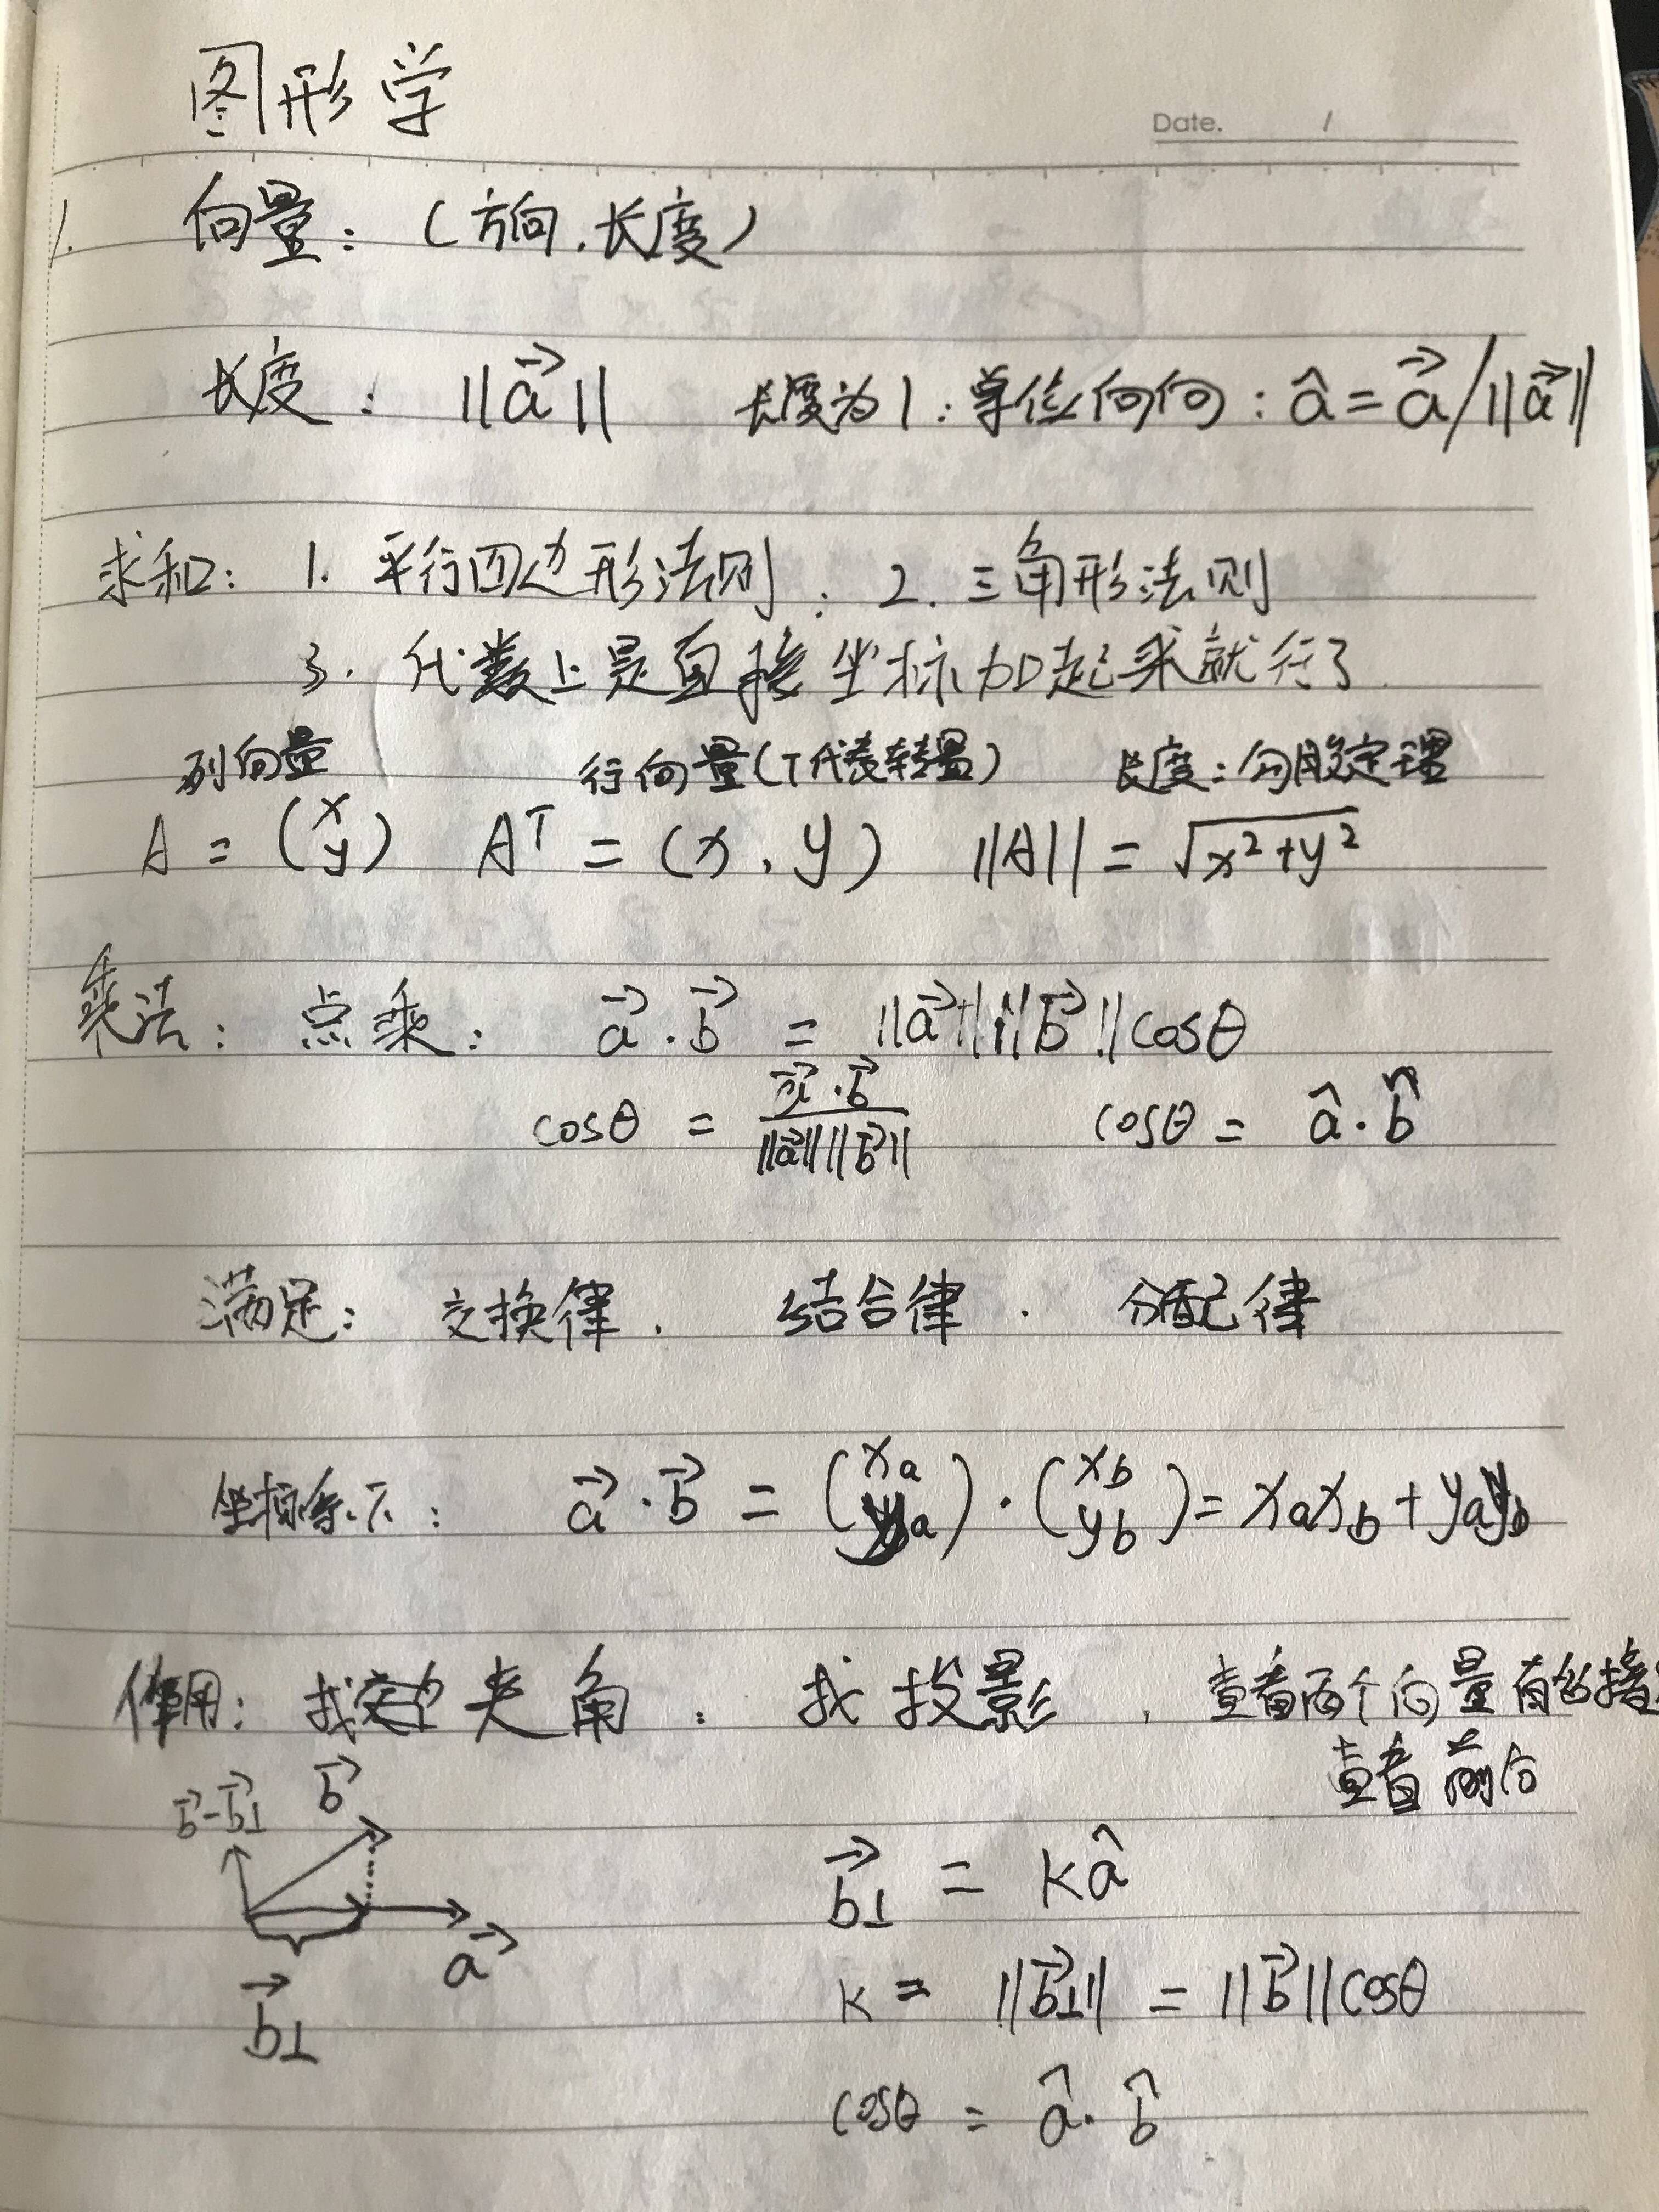 图形学
Date. /
1. 向量：（方向，长度）
长度：||a⃗|| 长度为1：单位向向：â = a⃗/||a⃗||
求和：1. 平行四边形法则；2. 三角形法则
3. 代数上是直接坐标加起来就行了
列向量 行向量（T代表转置） 长度：勾股定理
A = (x y) Aᵀ = (x, y) ||A|| = √(x²+y²)
乘法：点乘：a⃗·b⃗ = ||a⃗|| ||b⃗|| cosθ
cosθ = a⃗·b⃗ / ||a⃗|| ||b⃗|| cosθ = â·b̂
满足：交换律. 结合律. 分配律
坐标系下：a⃗·b⃗ = (xa ya)·(xb yb) = xaxb + yayb
作用：找 夹角. 找投影, 查看两个向量有多接
查看前后
b⃗-b⃗⊥ b⃗
b⃗⊥ = kâ
a⃗
b⃗⊥
k = ||b⃗⊥|| = ||b⃗||cosθ
cosθ = â·b̂